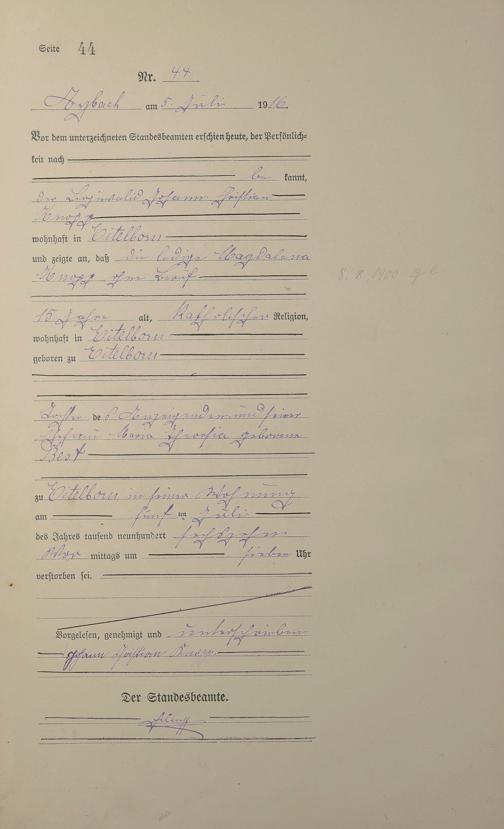 Seite 44
Nr. 44
Arzbach am 5. Juli 1916.
Vor dem unterzeichneten Standesbeamten erschien heute, der Persönlich=
keit nach
be kannt,
der Johann Christian
Knopp
wohnhaft in Eitelborn
und zeigte an, daß die ledige Magdalena
Knopp ohne Beruf
15 Jahre alt, Katholischer Religion,
wohnhaft in Eitelborn
geboren zu Eitelborn
8.8.1900
Tochter des Anzeigenden und seiner
Ehefrau Maria Theresia geborene
Best
zu Eitelborn in seiner Wohnung
am fünften Juli
des Jahres tausend neunhundert sechszehn
Vor mittags um sieben Uhr
verstorben sei.
Vorgelesen, genehmigt und unterschrieben
Johann Christian Knopp
Der Standesbeamte.